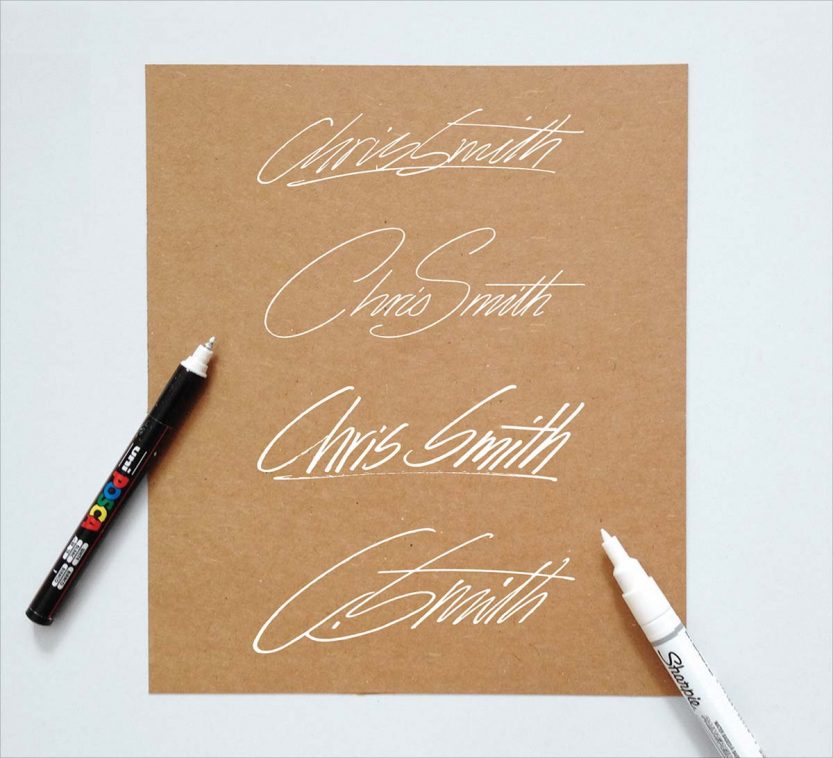 Chris Smith
Chris Smith
Chris Smith
C. Smith
uni POSCA
Sharpie